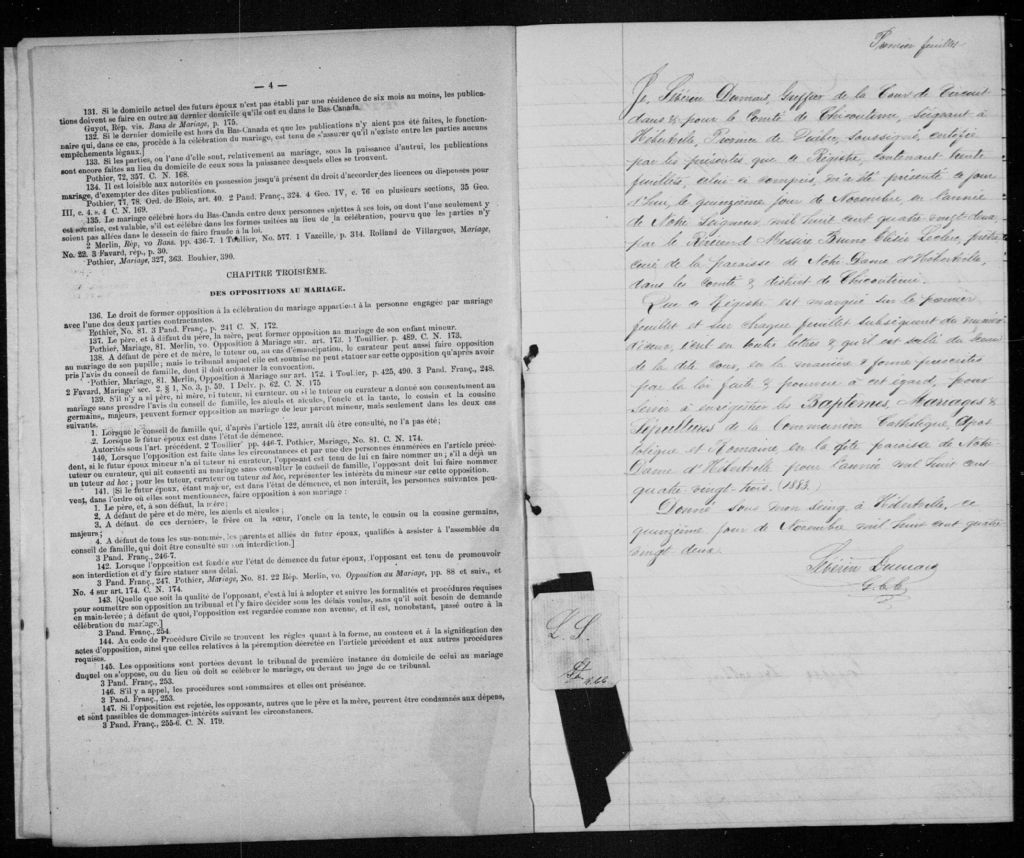 — 4 —
131. Si le domicile actuel des futurs époux n'est pas établi par une résidence de six mois au moins, les publica-
tions doivent se faire en outre au dernier domicile qu'ils ont eu dans le Bas-Canada.
Guyot, Rép. vis. Bans de Mariage, p. 175.
132. Si le dernier domicile est hors du Bas-Canada et que les publications n'y aient pas été faites, le fonction-
naire qui, dans ce cas, procède à la célébration du mariage, est tenu de s'assurer qu'il n'existe entre les parties aucuns
empêchements légaux.]
133. Si les parties, ou l'une d'elle sont, relativement au mariage, sous la puissance d'autrui, les publications
sont encore faites au lieu du domicile de ceux sous la puissance desquels elles se trouvent.
Pothier, 72, 337. C. N. 168.
134. Il est loisible aux autorités en possession jusqu'à présent du droit d'accorder des licences ou dispenses pour
mariage, d'exempter des dites publications.
Pothier, 77, 78. Ord. de Blois, art. 40. 2 Pand. Franç., 324. 4 Geo. IV, c. 76 en plusieurs sections, 35 Geo.
III, c. 4. s. 4 C. N. 169.
135. Le mariage célébré hors du Bas-Canda entre deux personnes sujettes à ses lois, ou dont l'une seulement y
est soumise, est valable, s'il est célébré dans les formes usitées au lieu de la célébration, pourvu que les parties n'y
soient pas allées dans le dessein de faire fraude à la loi.
2 Merlin, Rép, vo Bans. pp. 436-7. 1 Toullier, No. 577. 1 Vazeille, p. 314. Rolland de Villargues, Mariage,
No. 22. 3 Favard, rép., p. 30.
Pothier, Mariage, 327, 363. Bouhier, 390.
CHAPITRE TROISIÈME.
DES OPPOSITIONS AU MARIAGE.
136. Le droit de former opposition à la célébration du mariage appartient à la personne engagée par mariage
avec l'une des deux parties contractantes.
Pothier, No. 81. 3 Pand. Franç., p. 241 C. N. 172.
137. Le père, et à défaut du père, la mère, peut former opposition au mariage de son enfant mineur.
Pothier, Mariage, 81. Merlin, vo. Opposition à Mariage sur. art. 173. 1 Touillier. p. 489. C. N. 173.
138. A défaut de père et de mère, le tuteur ou, au cas d'émancipation, le curateur peut aussi faire opposition
au mariage de son pupille; mais le tribunal auquel elle est soumise ne peut statuer sur cette opposition qu'après avoir
pris l'avis du conseil de famille, dont il doit ordonner la convocation.
Pothier, Mariage, 81. Merlin, Opposition à Mariage sur art. 172. 1 Toullier, p. 425, 490. 3 Pand. Franç., 248.
2 Favard, Mariage sec. 2. § 1, No. 3, p. 59. 1 Delv. p. 62. C. N. 175
139. S'il n'y a ni père, ni mère, ni tuteur, ni curateur, ou si le tuteur ou curateur a donné son consentement au
mariage sans prendre l'avis du conseil de famille, les aieuls et aieules, l'oncle et la tante, le cousin et la cousine
germains, majeurs, peuvent former opposition au mariage de leur parent mineur, mais seulement dans les deux cas
suivants.
1. Lorsque le conseil de famille qui, d'après l'article 122, aurait dû être consulté, ne l'a pas été;
2. Lorsque le futur époux est dans l'état de démence.
Autorités sous l'art. précédent. 2 Toullier pp. 446-7. Pothier, Mariage, No. 81. C. N. 174.
140. Lorsque l'opposition est faite dans les circonstances et par une des personnes énumérées en l'article précé-
dent, si le futur époux mineur n'a ni tuteur ni curateur, l'opposant est tenu de lui en faire nommer un; s'il a déjà un
tuteur ou curateur, qui ait consenti au mariage sans consulter le conseil de famille, l'opposant doit lui faire nommer
un tuteur ad hoc; pour les tuteur, curateur ou tuteur ad hoc, représenter les intérêts du mineur sur cette opposition.
141. [Si le futur époux, étant majeur, est dans l'état de démence, et non interdit, les personnes suivantes peu-
vent, dans l'ordre où elles sont mentionnées, faire opposition à son mariage:
1. Le père, et, à son défaut, la mère;
2. A défaut de père et de mère, les aieuls et aieules;
3. A défaut de ces derniers, le frère ou la sœur, l'oncle ou la tente, le cousin ou la cousine germains,
majeurs;
4. A défaut de tous les sus-nommés, les parents et alliés du futur époux, qualifiés à assister à l'assemblée du
conseil de famille, qui doit être consulté sur son interdiction.]
3 Pand. Franç., 246-7.
142. Lorsque l'opposition est fondée sur l'état de démence du futur époux, l'opposant est tenu de promouvoir
son interdiction et d'y faire statuer sans délai.
3 Pand. Franç., 247. Pothier, Mariage, No. 81. 22 Rép. Merlin, vo. Opposition au Mariage, pp. 88 et suiv., et
No. 4 sur art. 174. C. N. 174.
143. [Quelle que soit la qualité de l'opposant, c'est à lui à adopter et suivre les formalités et procédures requises
pour soumettre son opposition au tribunal et l'y faire décider sous les délais voulus, sans qu'il soit besoin de demande
en main-levée; à défaut de quoi, l'opposition est regardée comme non avenue, et il est, nonobstant, passé outre à la
célébration du mariage.]
3 Pand. Franç., 254.
144. Au code de Procédure Civile se trouvent les règles quant à la forme, au contenu et à la signification des
actes d'opposition, ainsi que celles relatives à la péremption décrétée en l'article précédent et aux autres procédures
requises.
145. Les oppositions sont portées devant le tribunal de première instance du domicile de celui au mariage
duquel on s'oppose, ou du lieu où doit se célébrer le mariage, ou devant un juge de ce tribunal.
3 Pand. Franç., 253.
146. S'il y a appel, les procédures sont sommaires et elles ont préséance.
3 Pand. Franç., 253.
147. Si l'opposition est rejetée, les opposants, autres que le père et la mère, peuvent être condamnés aux dépens,
et sont passibles de dommages-intérêts suivant les circonstances.
3 Pand. Franç., 255-6. C. N. 179.
L. S.
Premier feuillet
Je, Sévérin Dumais, Greffier de la Cour de Circuit
dans & pour le Comté de Chicoutimi, Seigeant à
Hébertville, Province de Québec, soussigné, certifie
par les présentes que ce Régistre, contenant trente
feuillets, celui-ci compris, m'a été présenté ce jour
d'hui, le quinzième jour de Novembre, en l'année
de Notre Seigneur, mil huit cent quatre vingt deux,
par le Révérend Messire Bruno Leclerc, prêtre
curé de la paroisse de Notre Dame d'Hébertville,
dans les comté & district de Chicoutimi.
Que ce Régistre est marqué sur le premier
feuillet et sur chaque feuillet subséquent du numéro
d'iceux, écrit en toutes lettres & qu'il est scellé du sceau
de la dite Cour, en la manière & forme prescrites
par la loi faite & pourvue à cet égard, pour
servir à enrégistrer les Baptêmes, Mariages &
Sépultures de la Communion Catholique, Apos
tolique et Romaine, en la dite paroisse de Notre
Dame d'Hébertville pour l'année mil huit cent
quatre vingt-trois. (1883.)
Donné sous mon seing à Hébertville, ce
quinzième jour de Novembre mil huit cent quatre
vingt deux.
Séverin Dumais
G. C. C.